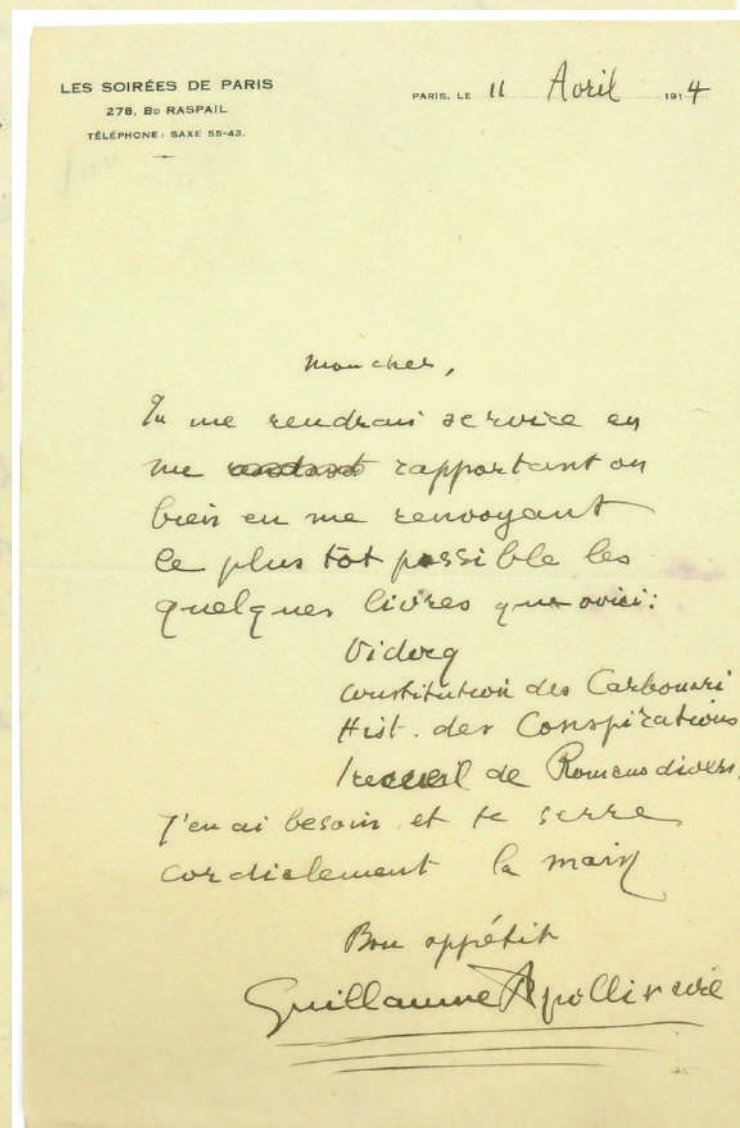 LES SOIRÉES DE PARIS
278, BD RASPAIL
TÉLÉPHONE : SAXE 55-43.
PARIS, LE 11 Avril 1914
Mon cher,
Tu me rendrais service en
me rapportant ou
bien en me renvoyant
le plus tôt possible les
quelques livres que voici :
Vidocq
Constitution des Carbonari
Hist. des Conspirations
1 recueil de Romans divers.
J'en ai besoin et te serre
cordialement la main
Bon appétit
Guillaume Apollinaire